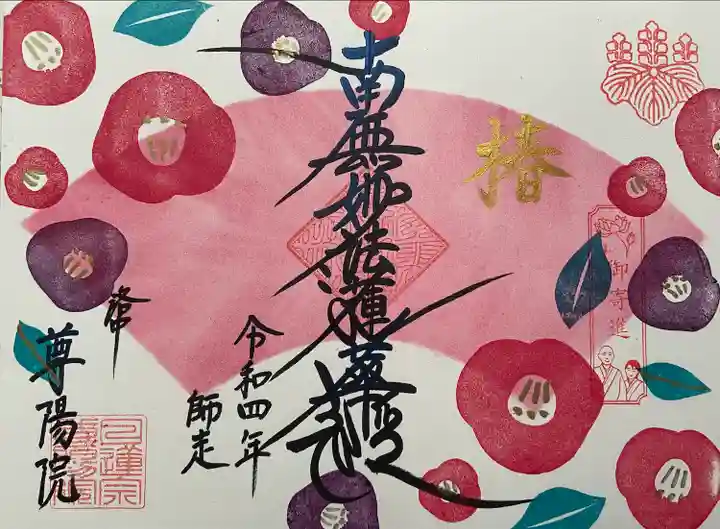 椿
御寄進
南無妙法蓮華経
令和四年
師走
尊陽院
日蓮宗